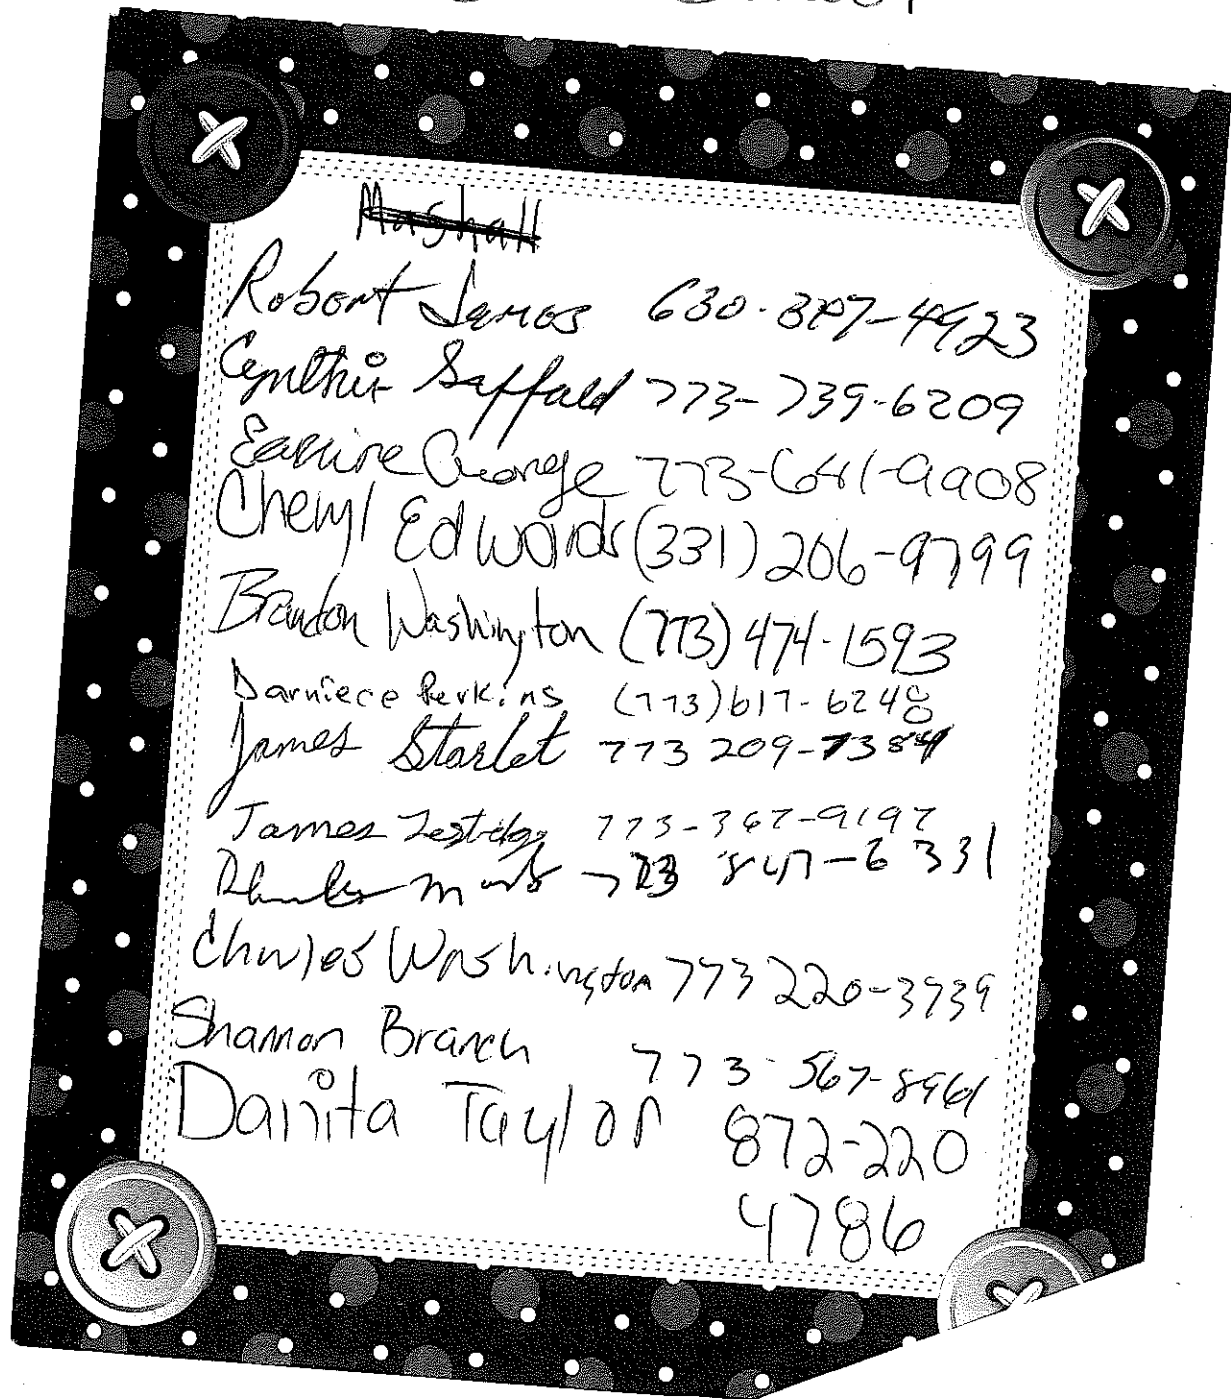 Mashall
Robert James 630-887-4923
Cynthia Saffold 773-739-6209
Earline George 773-641-9908
Cheryl Edwards (331) 206-9799
Brandon Washington (773) 474-1593
Darniece Perkins (773) 617-6248
James Starlet 773 209-7384
James 773-367-9197
773 847-6331
Charles Washington 773 220-3939
Shannon Branch 773-567-8961
Danita Taylor 872-220
4786